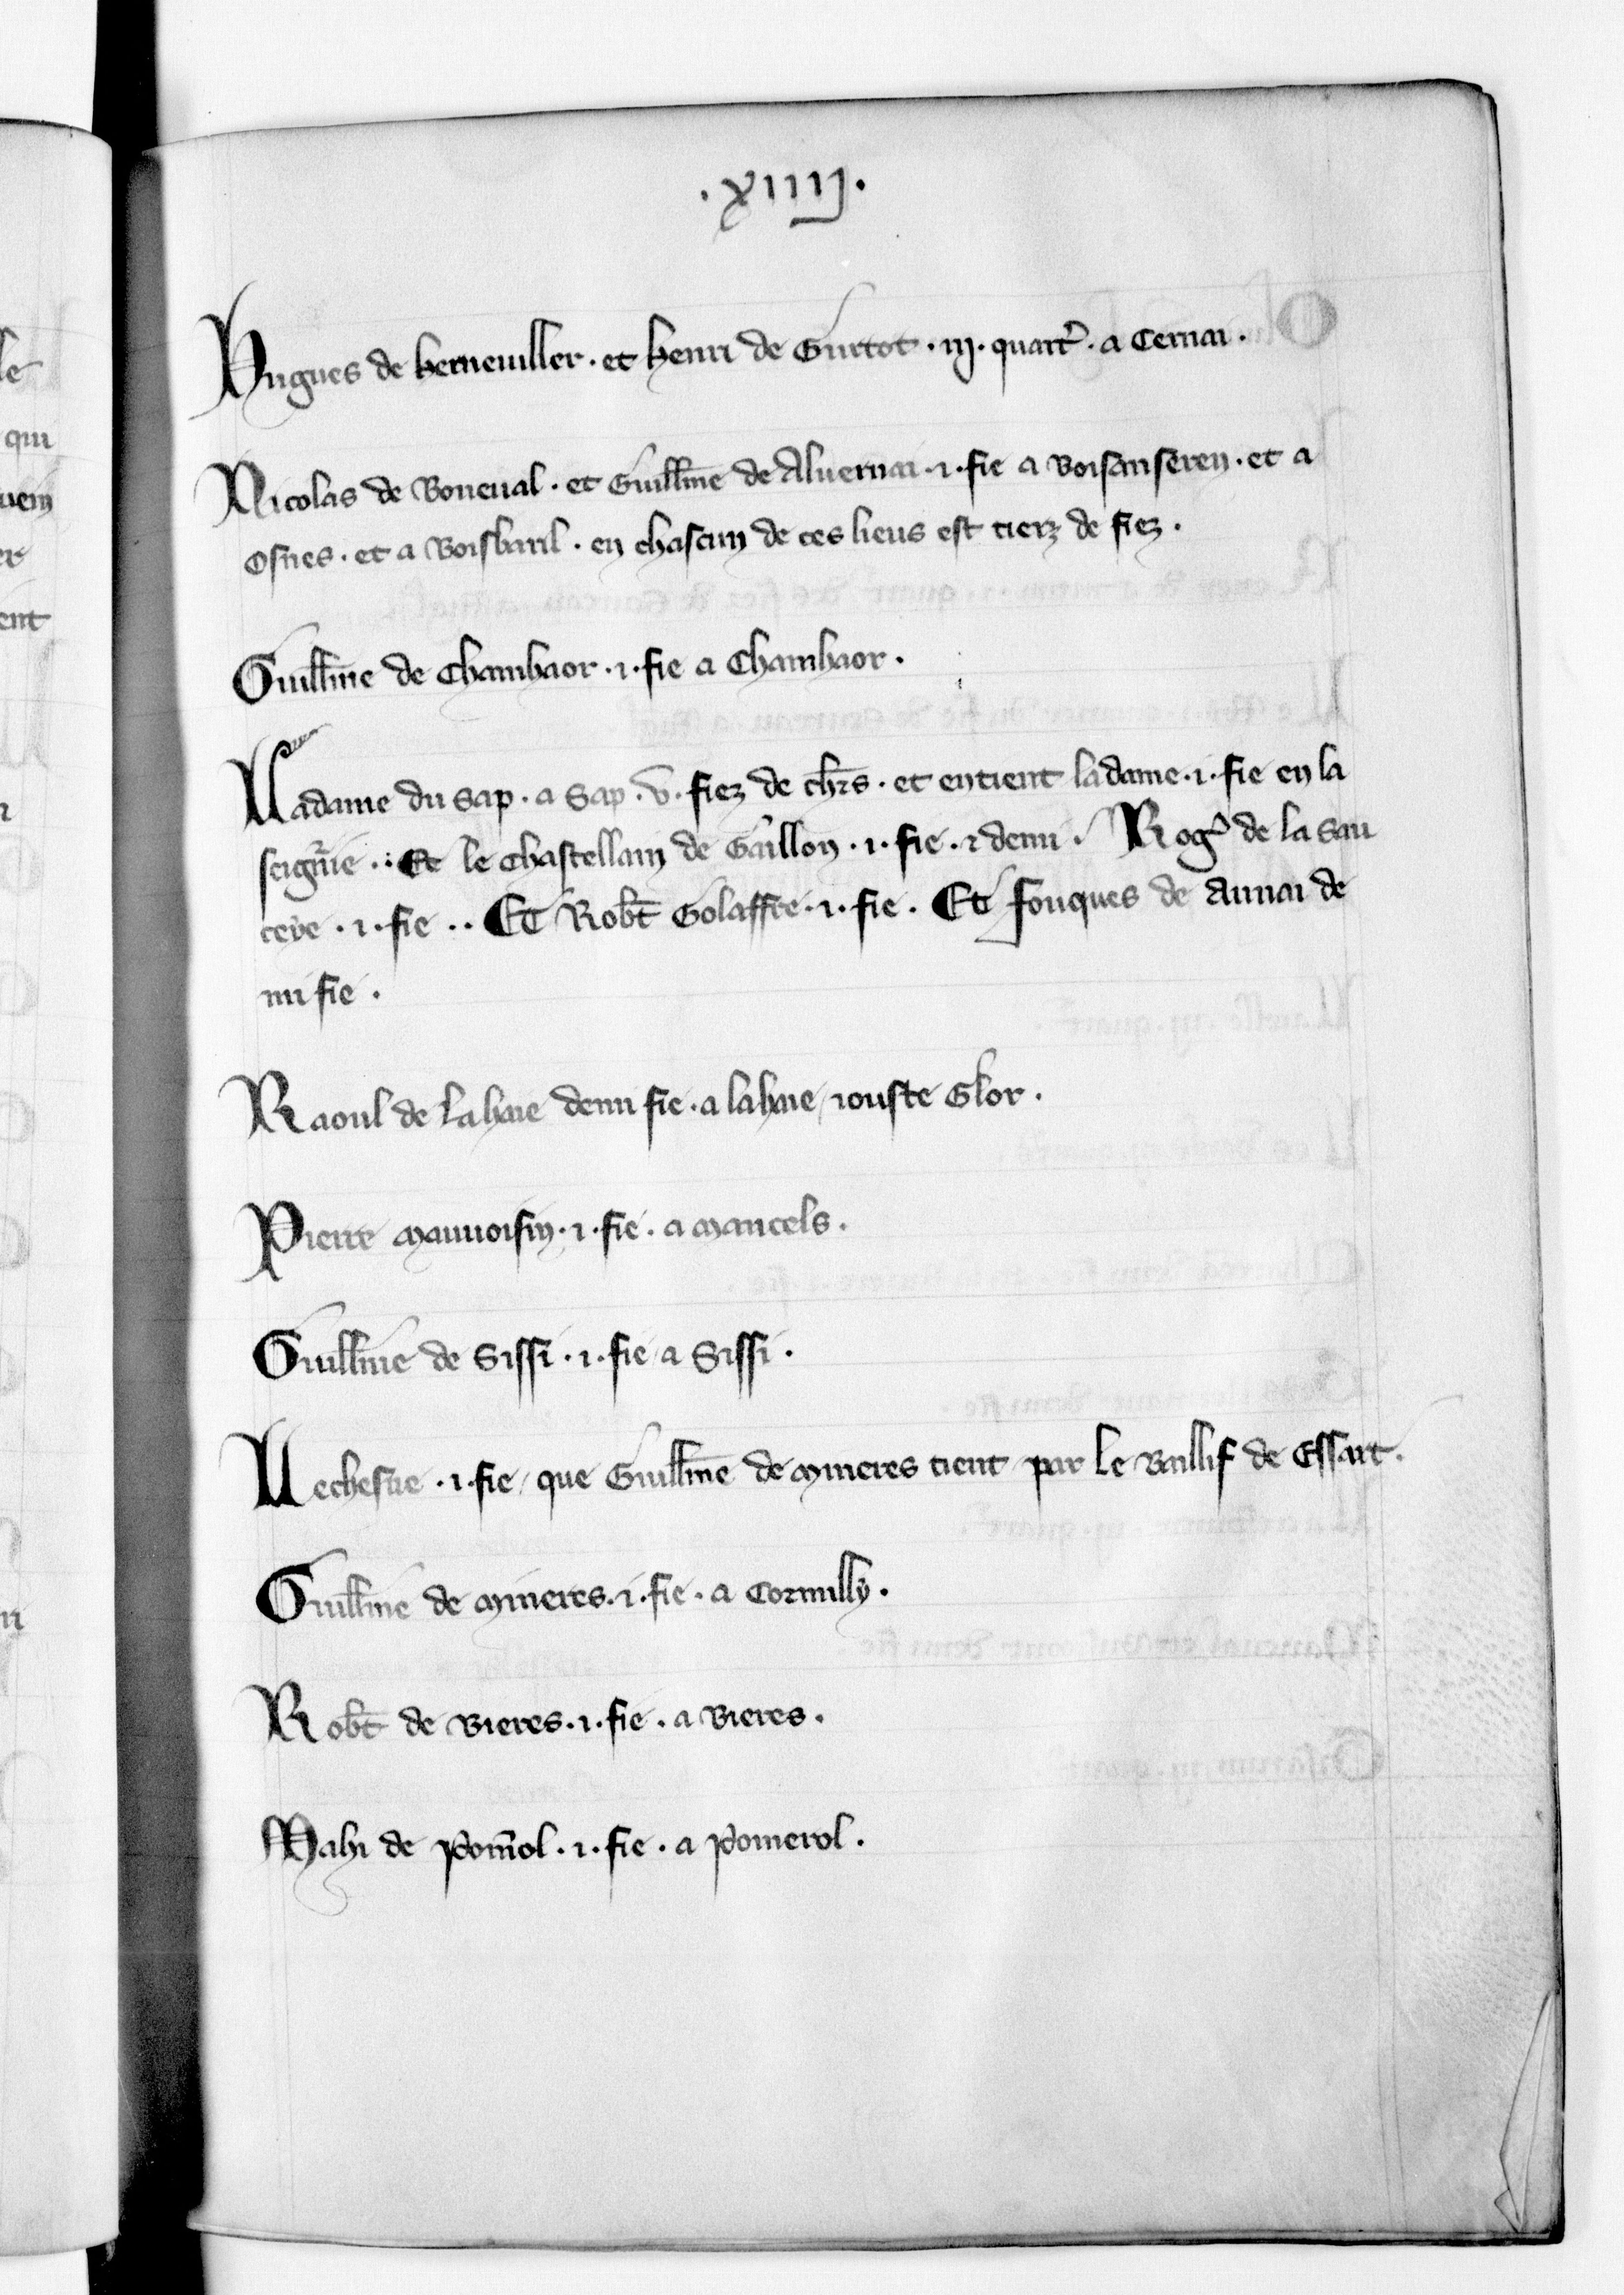 .xiiij.
Hugues de berneuiller. et henri de Gurtot. iij. quart̃. a Cernai.
Nicolas de Boneual. et Guill̃me de Aluernai .i. fie a Boisanseren. et a
Osnes. et a Boisbaril. en chascun de ces lieus est tierz de fiez.
Guill̃me de Chambaor .i. fie a Chambaor.
Madame du Sap. a Sap .v. fiez de ch̃rs. et entient ladame .i. fie en la
seign̄rie .. Et le chastellain de Gaillon .i. fie. ⁊ demi. Rog̃ de la Sau
ceye .i. fie .. Et Rob̃t Golaffre .i. fie. Et fouques de Aunai de
mi fie.
Raoul de la haie demi fie. a la haie / iouste Glor.
Pierre mauuoisin .i. fie. a mancels.
Guill̃me de Sissi .i. fie / a Sissi.
Uechesue .i. fie / que Guill̃me de mineres tient / par le Baillif de Essart.
Guill̃me de mineres .i. fie. a Cormilly.
Rob̃t de Bieres .i. fie. a Bieres.
Mahi de Pom̃ol .i. fie. a Pomerol.